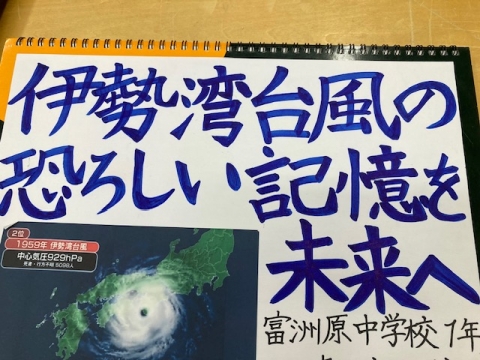 伊勢湾台風の
恐ろしい記憶を
未来へ
2位
1959年 伊勢湾台風
中心気圧929hPa
死者・行方不明 5098人
富洲原中学校1年